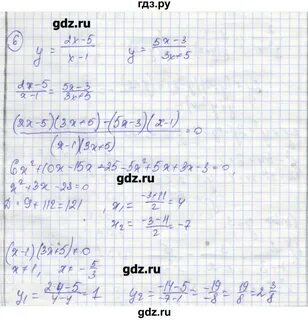 гдз.рф
6
y = (2x-5)/(x-1)  y = (5x-3)/(3x+5)
(2x-5)/(x-1) = (5x-3)/(3x+5)
((2x-5)(3x+5)-(5x-3)(x-1))/((x-1)(3x+5)) = 0
6x²+10x-15x+25-5x²+5x+3x-3=0,
x²+3x-28=0
D=9+112=121  x₁ = (-3+11)/2 = 4
x₂ = (-3-11)/2 = -7
(x-1)(3x+5)≠0
x≠1, x≠-5/3
y₁ = (2·4-5)/(4-1) = 1  y₂ = (-14-5)/(-7-1) = -19/-8 = 19/8 = 2 3/8
gdz.ru
gdz.ru
gdz.ru
gdz.ru
gdz.ru